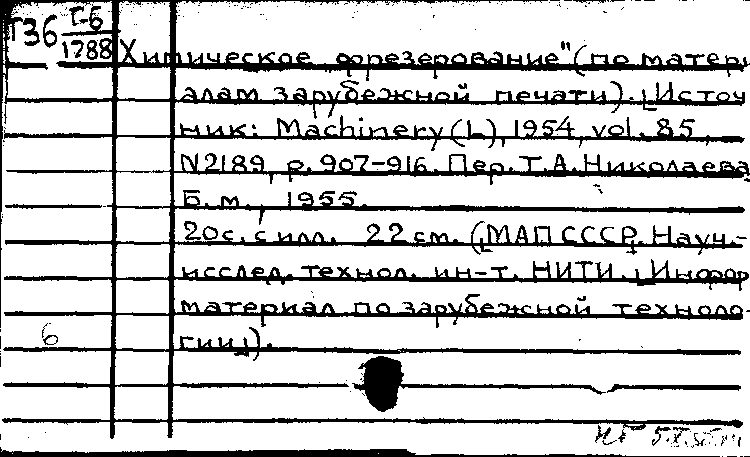 Г36 Г-6
1788
Химическое фрезерование" (по матери
алам зарубежной печати). [Источ
ник: Machinery (L), 1954, vol. 85,
N2189, p. 907-916. Пер. Т.А. Николаева]
Б.м., 1955.
20с. с илл. 22 см. ([МАП СССР. Науч.-
исслед. технол. ин-т. НИТИ.] [Информ
материал по зарубежной техноло-
гии]).
6